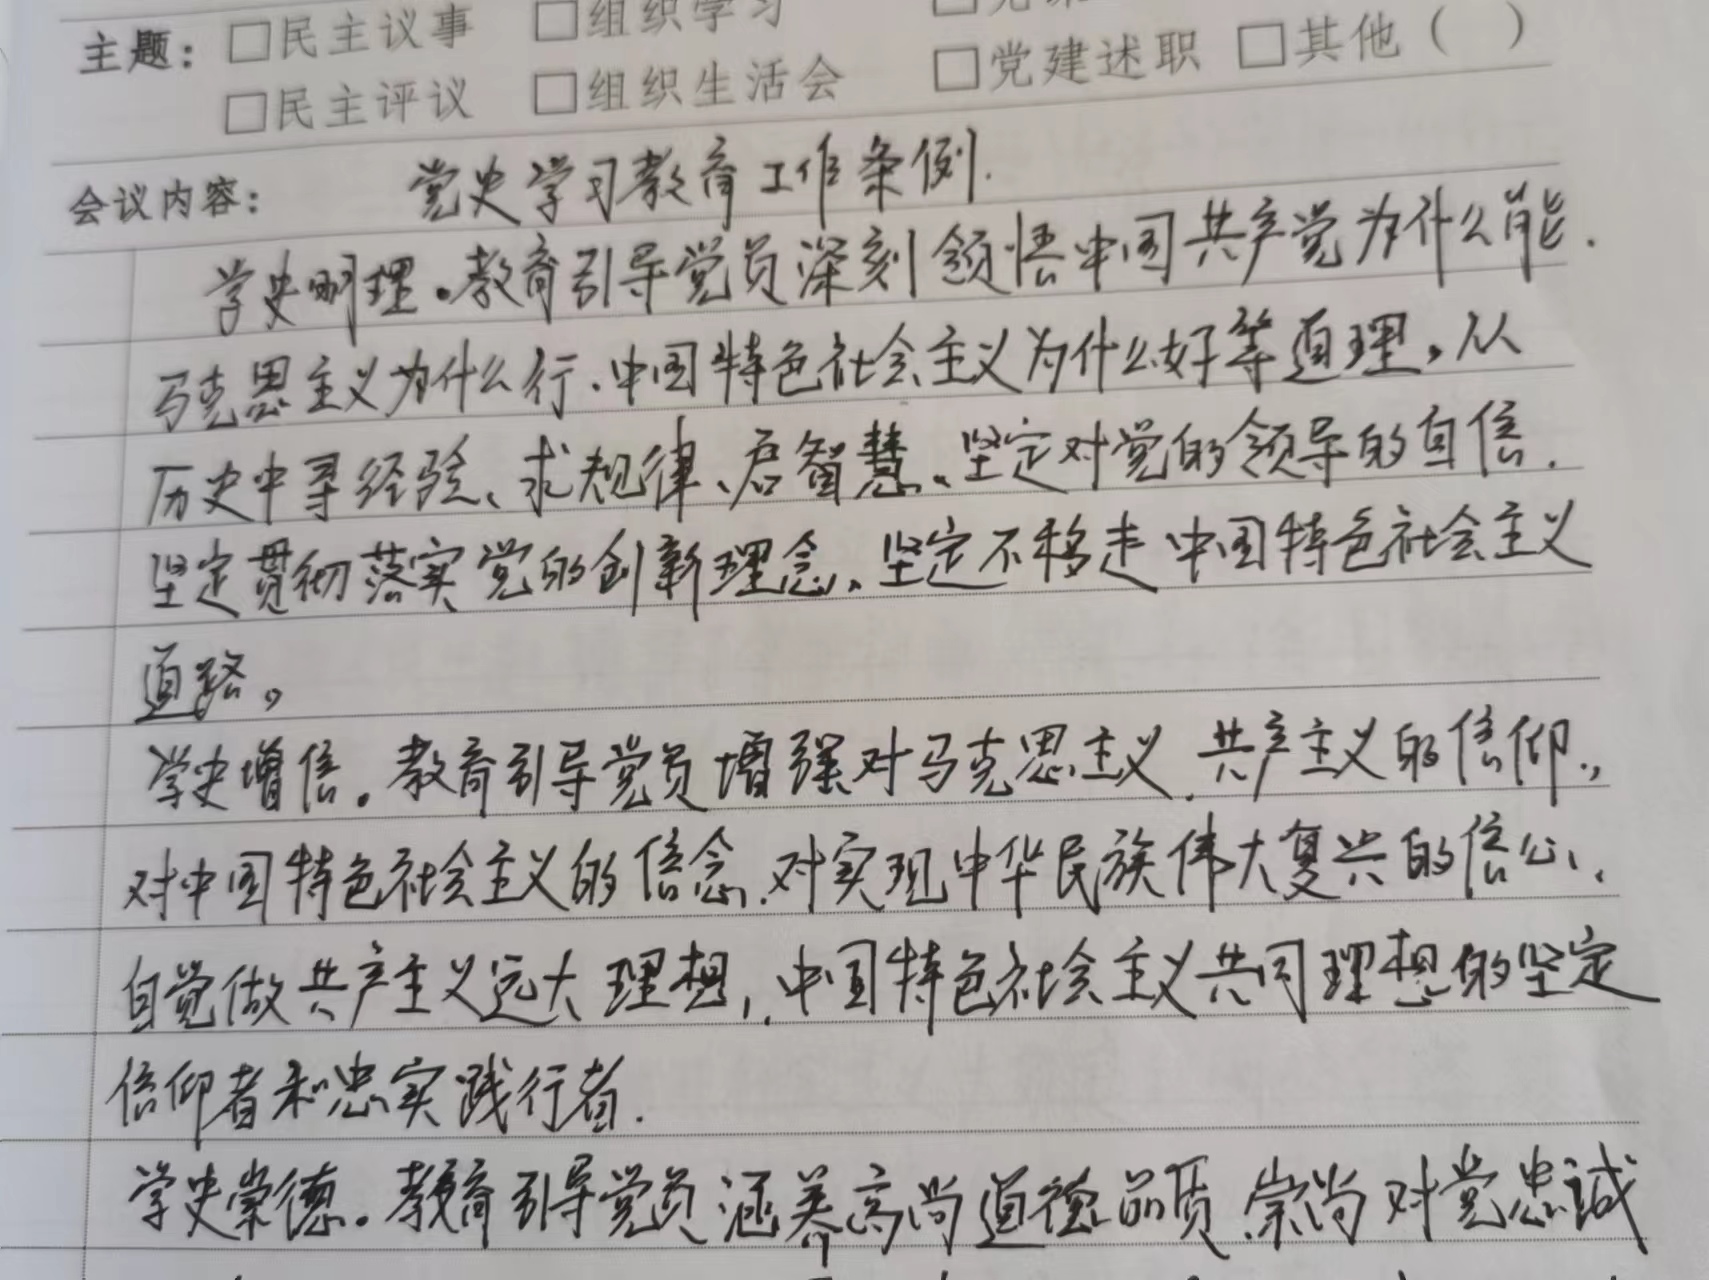 主题：□民主议事 □组织学习
□民主评议 □组织生活会 □党建述职 □其他（ ）
会议内容： 党史学习教育工作条例.
学史明理。教育引导党员深刻领悟中国共产党为什么能.
马克思主义为什么行、中国特色社会主义为什么好等道理，从
历史中寻经验、求规律、启智慧、坚定对党的领导的自信.
坚定贯彻落实党的创新理念、坚定不移走中国特色社会主义
道路。
学史增信。教育引导党员增强对马克思主义、共产主义的信仰，
对中国特色社会主义的信念、对实现中华民族伟大复兴的信心、
自觉做共产主义远大理想，中国特色社会主义共同理想的坚定
信仰者和忠实践行者.
学史崇德。教育引导党员涵养高尚道德品质、崇尚对党忠诚